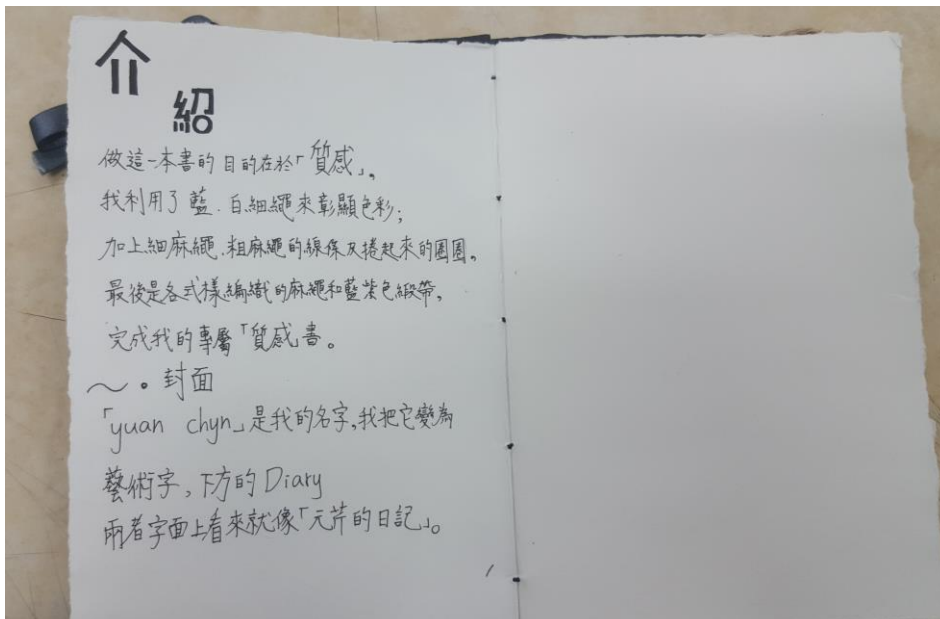 介
紹
做這一本書的目的在於「質感」。
我利用了藍．白細繩來彰顯色彩；
加上細麻繩．粗麻繩的線條及捲起來的圈圈。
最後是各式樣編織的麻繩和藍紫色緞帶，
完成我的專屬「質感」書。
～。封面
「yuan chyn」是我的名字，我把它變為
藝術字，下方的Diary
兩者字面上看來就像「元芹的日記」。
1